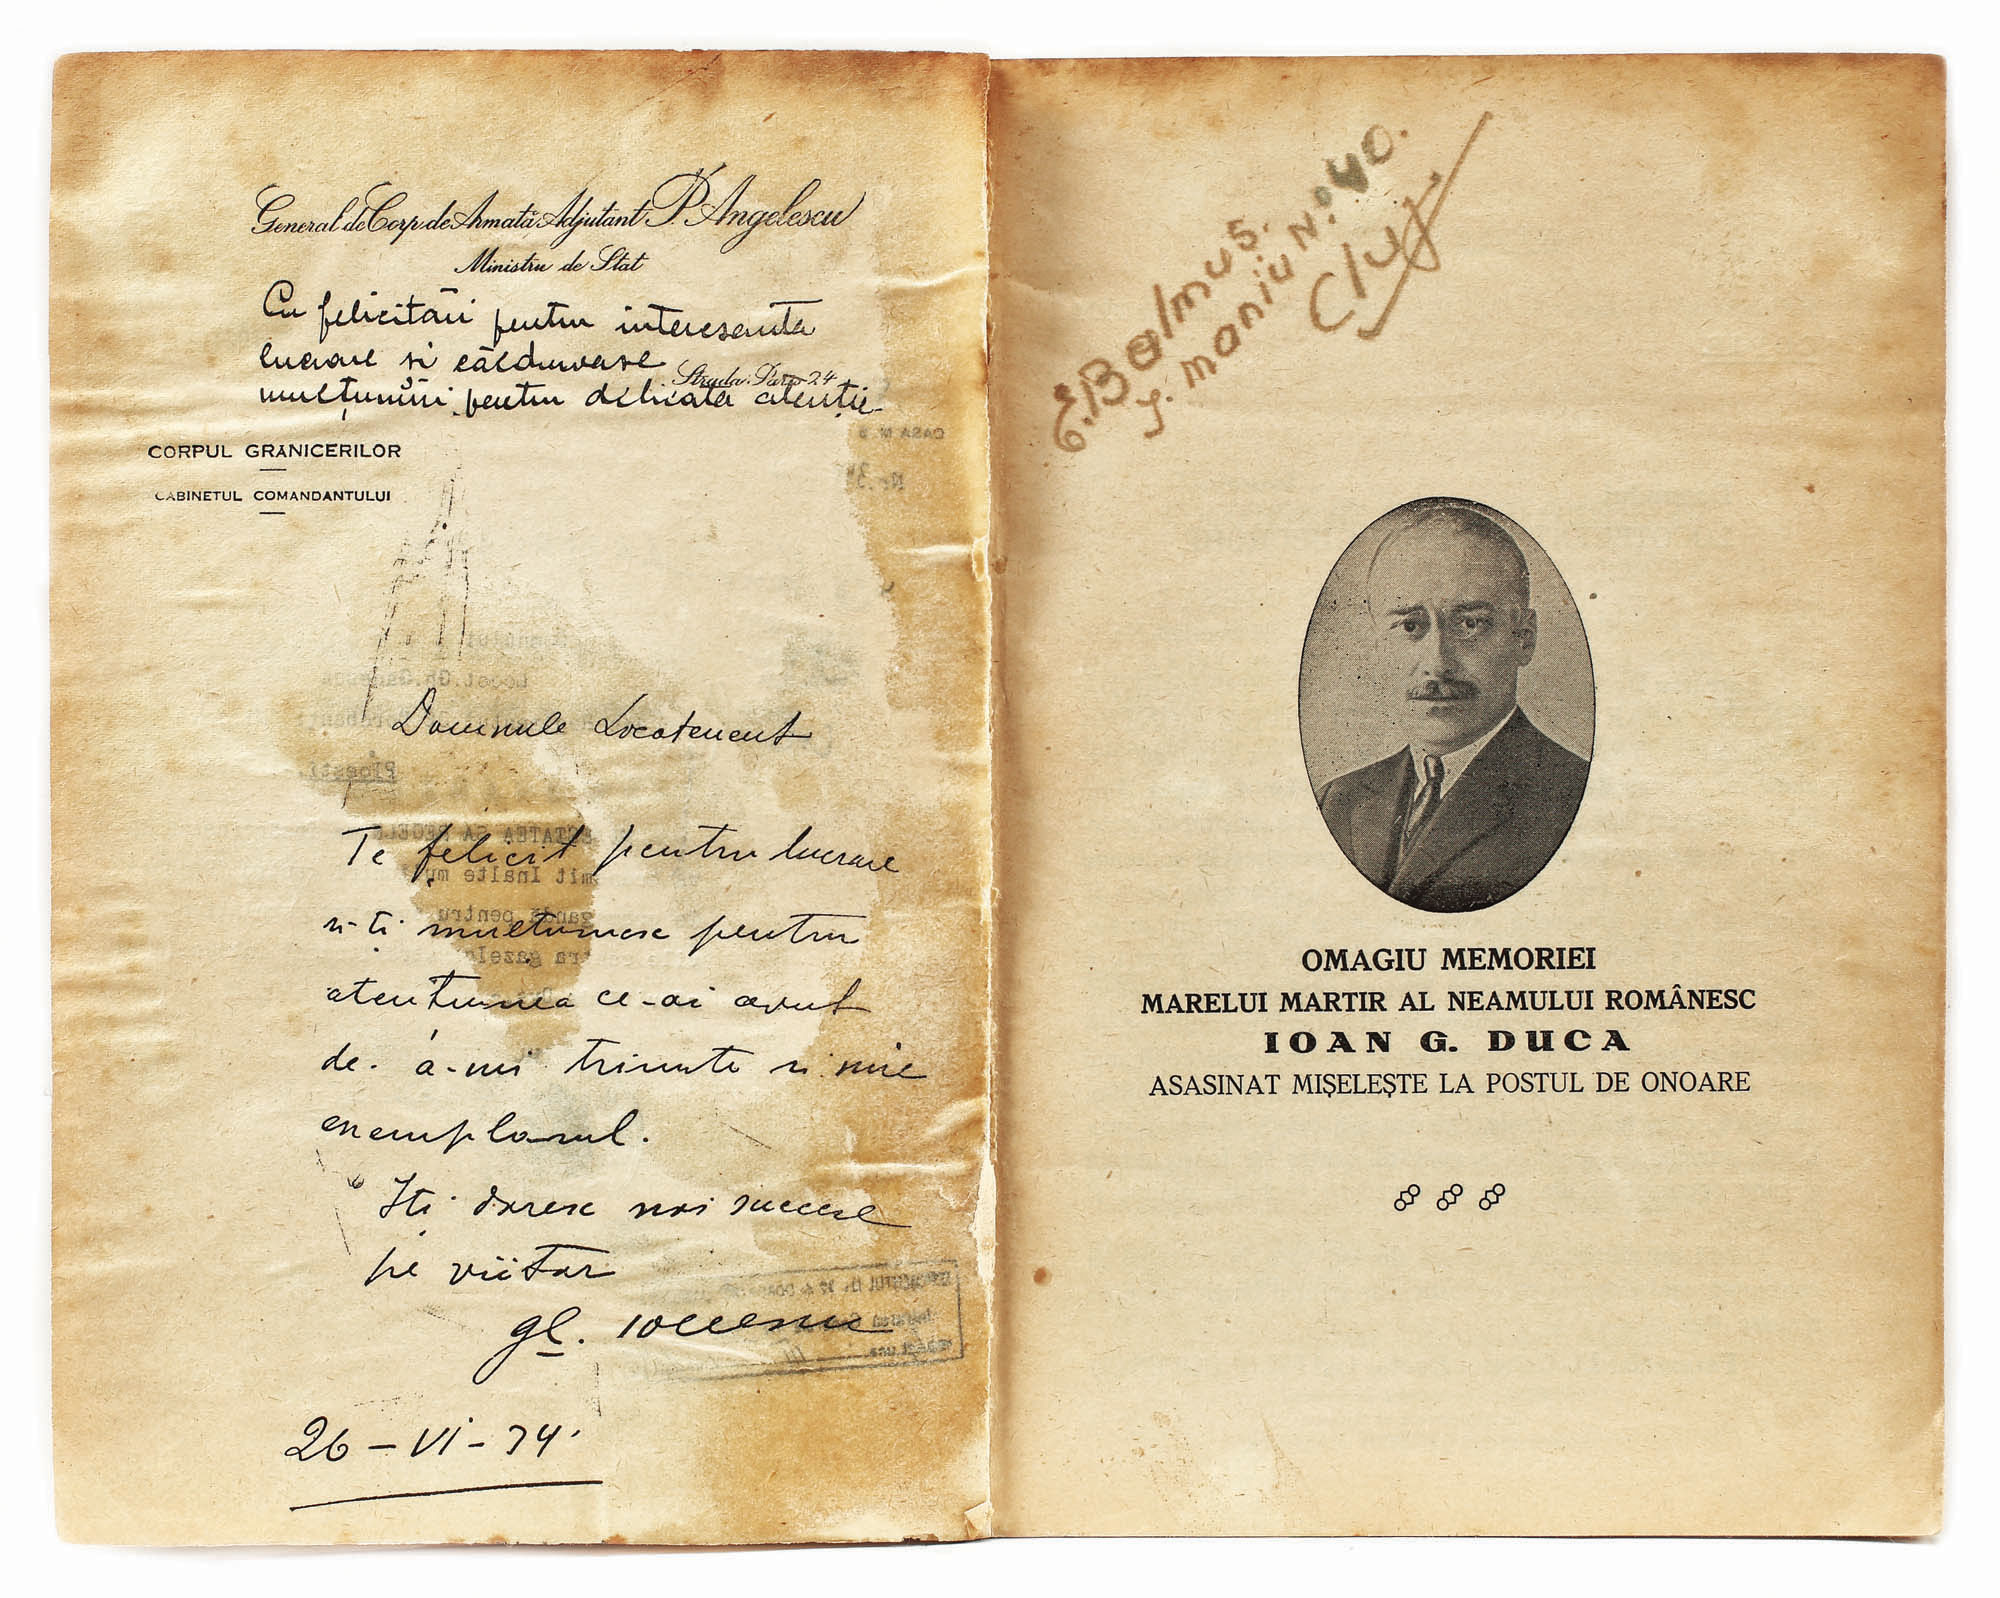 General de Corp de Armată Adjutant P. Angelescu
Ministru de Stat
Cu felicitări pentru interesanta
lucrare si călduroase
Strada Paris 24
mulțumiri pentru delicata atenție
CORPUL GRĂNICERILOR
CABINETUL COMANDANTULUI
Domnule Locotenent
Te felicit pentru lucrare
si-ți multumesc pentru
atentiunea ce-ai avut
de a-mi trimite si mie
exemplarul.
Iți doresc noi succese
pe viitor
gl.
26-VI-34
E. Balmus.
J. maniu No. 40.
Cluj
OMAGIU MEMORIEI
MARELUI MARTIR AL NEAMULUI ROMÂNESC
IOAN G. DUCA
ASASINAT MIȘELEȘTE LA POSTUL DE ONOARE